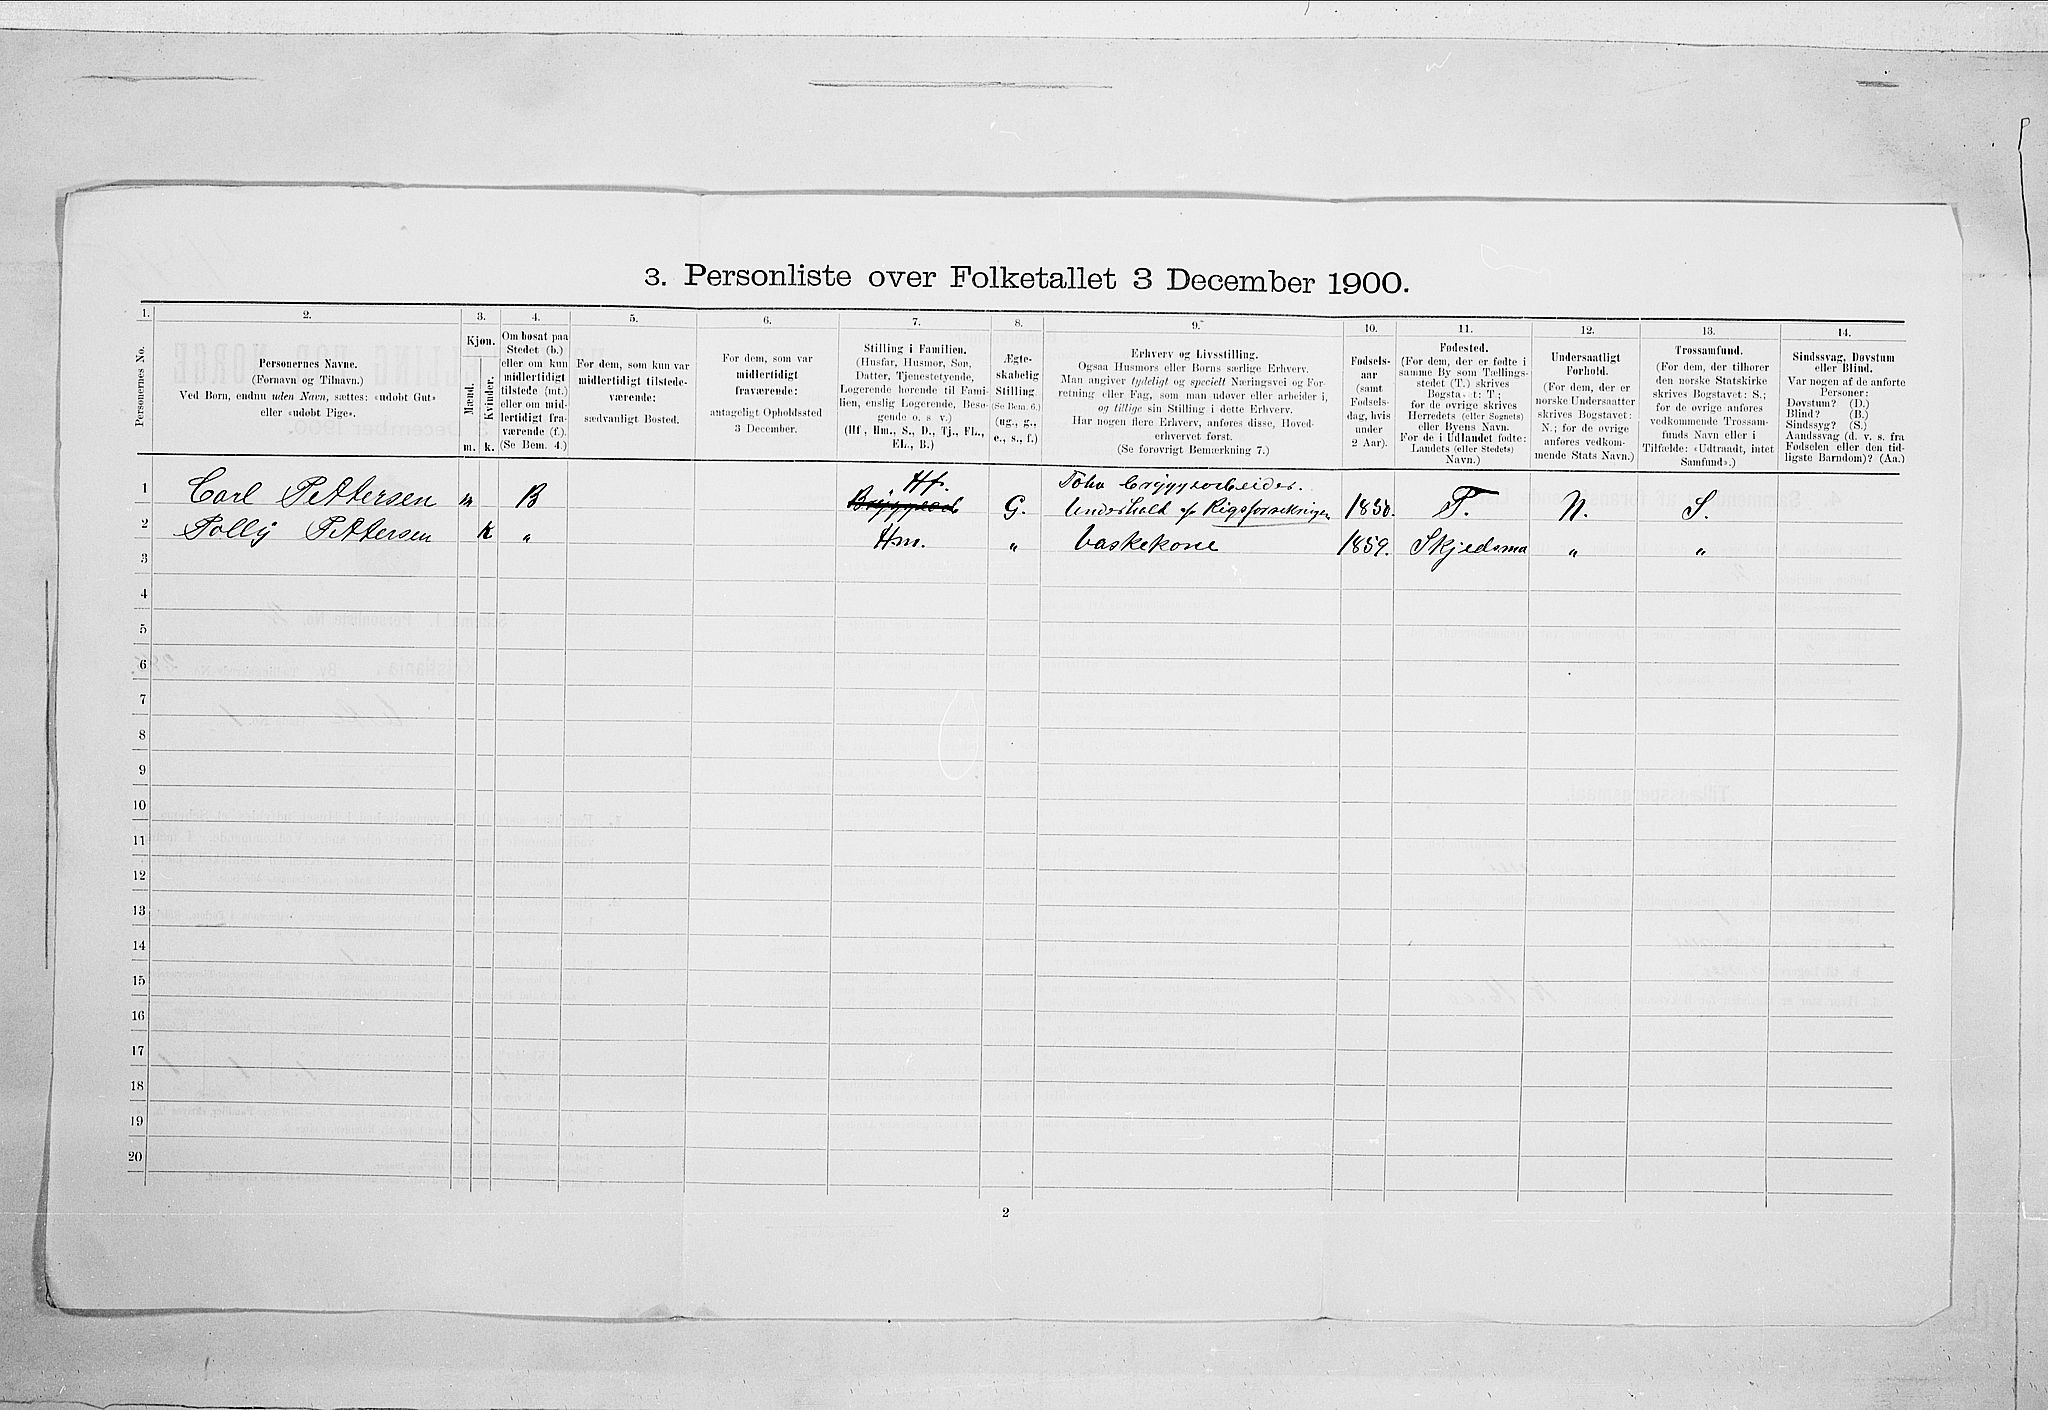 3. Personliste over Folketallet 3 December 1900.
1. 2. 3. 4. 5. 6. 7. 8. 9. 10. 11. 12. 13. 14.
Personernes No.
Personernes Navne.
(Fornavn og Tilnavn.)
Ved Børn, endnu uden Navn, sættes: «udøbt Gut»
eller «udøbt Pige».
Kjøn.
Mænd.
Kvinder.
m. k.
Om bosat paa
Stedet (b.)
eller om kun
midlertidigt
tilstede (mt.)
eller om mid-
lertidigt fra-
værende (f.).
(Se Bem. 4.)
For dem, som kun var
midlertidigt tilstede-
værende:
sædvanligt Bosted.
For dem, som var
midlertidigt
fraværende:
antageligt Opholdssted
3 December.
Stilling i Familien.
(Husfar, Husmor, Søn,
Datter, Tjenestetyende,
Logerende hørende til Fami-
lien, enslig Logerende, Besø-
gende o. s. v.)
(Hf, Hm., S., D., Tj., FL.,
EL., B.)
Ægte-
skabelig
Stilling
(Se Bem. 6.)
(ug., g.,
e., s., f.)
Erhverv og Livsstilling.
Ogsaa Husmors eller Børns særlige Erhverv.
Man angiver tydeligt og specielt Næringsvei og For-
retning eller Fag, som man udøver eller arbeider i,
og tillige sin Stilling i dette Erhverv.
Har nogen flere Erhverv, anføres disse, Hoved-
erhvervet først.
(Se forøvrigt Bemærkning 7.)
Fødsels-
aar
(samt
Fødsels-
dag, hvis
under
2 Aar).
Fødested.
(For dem, der er fødte i
samme By som Tællings-
stedet (T.) skrives
Bogstavet: T;
for de øvrige skrives
Herredets (eller Sognets)
eller Byens Navn.
For de i Udlandet fødte:
Landets (eller Stedets)
Navn.)
Undersaatligt
Forhold.
(For dem, der er
norske Undersaatter
skrives Bogstavet:
N.; for de øvrige
anføres vedkom-
mende Stats Navn.)
Trossamfund.
(For dem, der tilhører
den norske Statskirke
skrives Bogstavet: S.;
for de øvrige anføres
vedkommende Trossam-
funds Navn eller i
Tilfælde: «Udtraadt, intet
Samfund».)
Sindssvag, Døvstum
eller Blind.
Var nogen af de anførte
Personer:
Døvstum? (D.)
Blind? (B.)
Sindssyg? (S.)
Aandssvag (d. v. s. fra
Fødselen eller den tid-
ligste Barndom)? (Aa.)
Hf. bryggearbeider.
1 Carl Pettersen m B G. Underholdt af Rigsforsikringen 1850. T. N. S.
2 Polly Pettersen k " Hm. " Vaskekone 1859. Skjedsmo " "
3
4
5
6
7
8
9
10
11
12
13
14
15
16
17
18
19
20
2